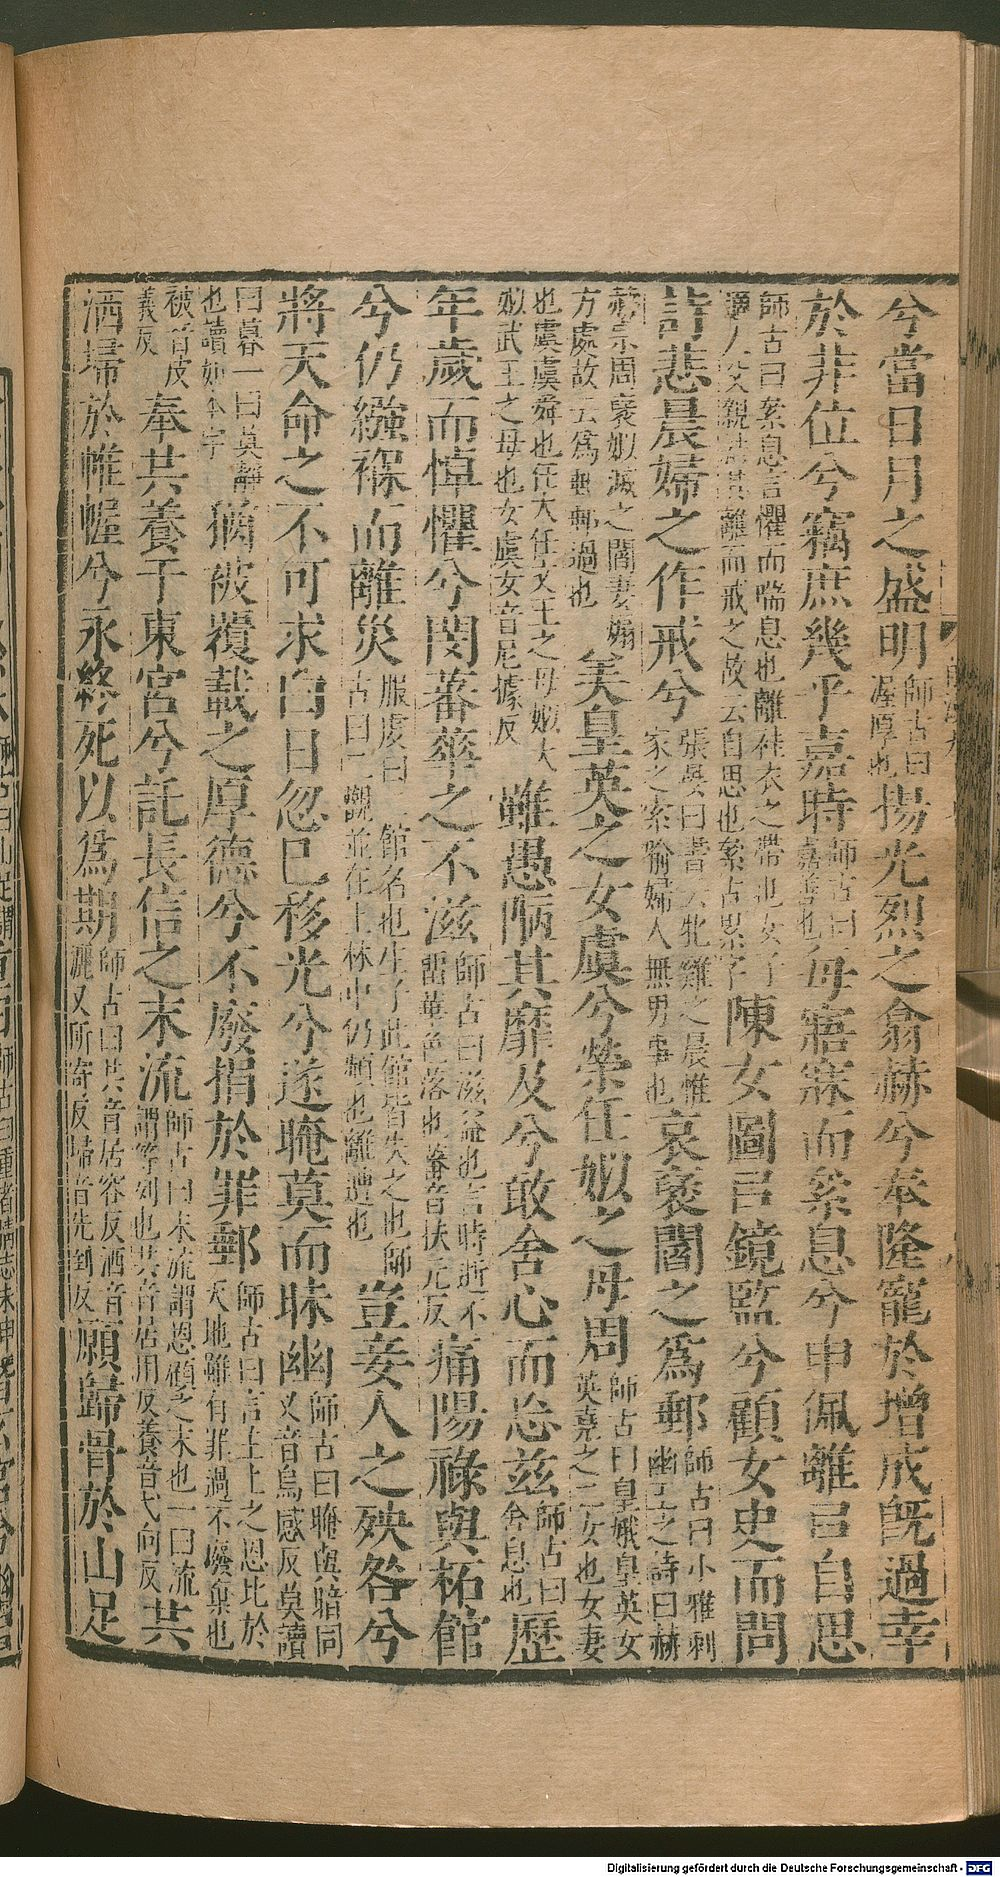 兮當日月之盛明師古曰渥厚也揚光烈之翕赫兮奉隆寵於增成既過幸
於非位兮竊庶幾乎嘉時師古曰嘉善也每寤寐而絫息兮申佩離㠯自思
師古曰絫息言懼而喘息也離袿衣之帶也女子適人父親結其離而戒之故云自思也絫古累字陳女圖㠯鏡監兮顧女史而問
詩悲晨婦之作戒兮張晏曰書云牝雞之晨惟家之索喻婦人無男事也哀襃閻之爲郵師古曰小雅刺幽王之詩曰赫
赫宗周襃姒滅之閻妻煽方處故云爲郵郵過也美皇英之女虞兮榮任姒之母周師古曰皇娥皇英女英堯之二女也女妻
也虞虞舜也任大任文王之母姒大姒武王之母也女虞女音尼據反雖愚陋其靡及兮敢舍心而忘茲師古曰兮息也歷
年歲而悼懼兮閔蕃華之不滋師古曰滋益也言時逝不留華色落也蕃音扶元反痛陽祿與柘館
兮仍繈褓而離災服虔曰二館名也生子此館皆失之也師古曰二觀並在上林中仍頻也離遭也豈妾人之殃咎兮
將天命之不可求白日忽已移光兮遂晻莫而昧幽師古曰晻與暗同又音烏感反莫讀
曰暮一曰莫靜也讀如本字猶被覆載之厚德兮不廢捐於罪郵師古曰言主上之恩比於天地雖有罪過不廢棄也
被音皮義反奉共養于東宮兮託長信之末流師古曰末流謂恩顧之末也一曰流謂等列也共音居用反養音弋向反共
洒埽於帷幄兮永終死以爲期師古曰共音居容反洒音灑又所寄反埽音先到反願歸骨於山足
Digitalisierung gefördert durch die Deutsche Forschungsgemeinschaft - DFG